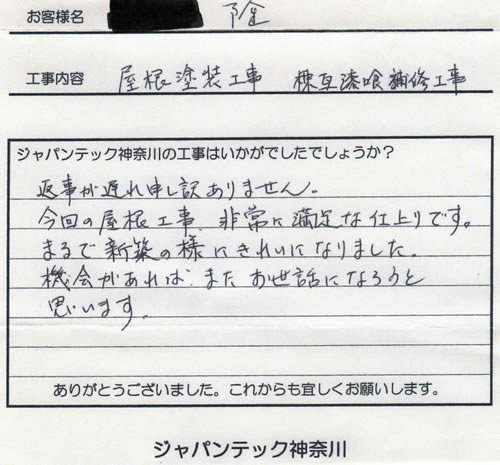 お客様名
工事内容 屋根塗装工事 棟瓦漆喰補修工事
ジャパンテック神奈川の工事はいかがでしたでしょうか?
返事が遅れ申し訳ありません。
今回の屋根工事、非常に満足な仕上りです。
まるで新築の様にきれいになりました。
機会があれば、またお世話になろうと
思います。
ありがとうございました。これからも宜しくお願いします。
ジャパンテック神奈川